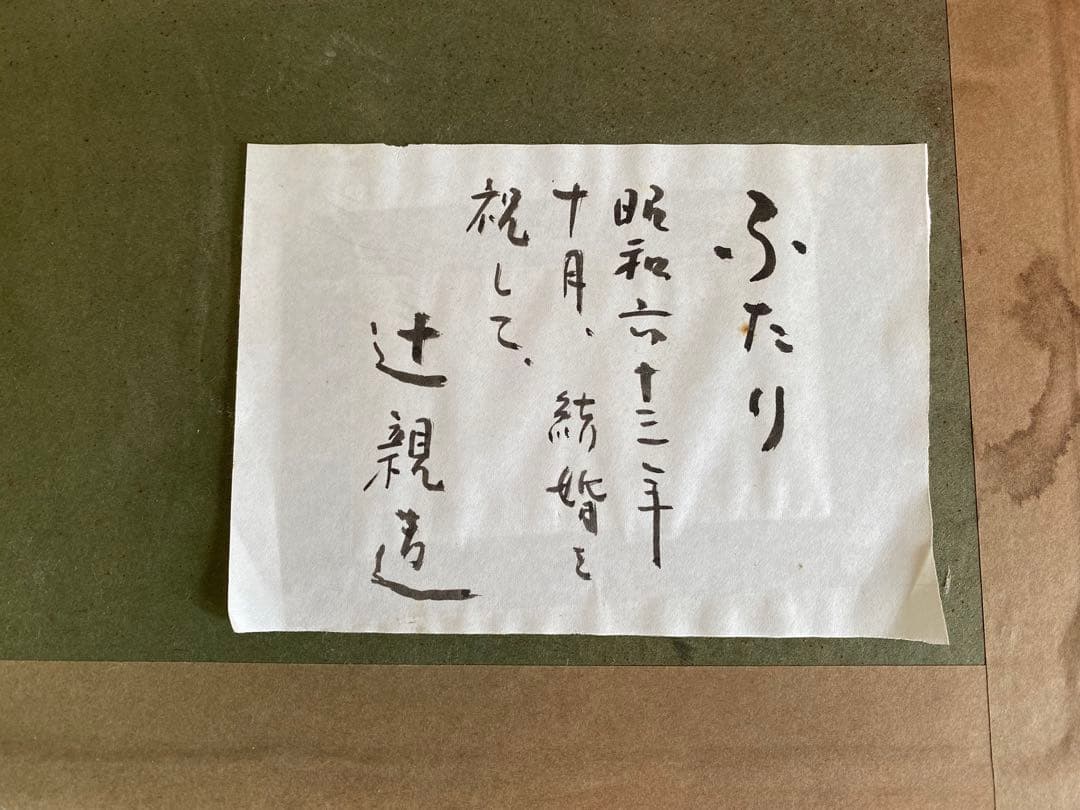 ふたり
昭和六十三年
十月、結婚を
祝して、
辻親造